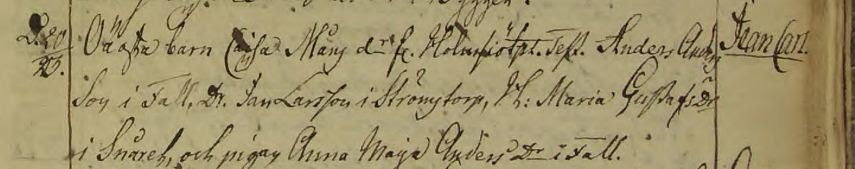 D. 20/23. Oägta barn Caisa Månsdr fr. Holmsjötpt. Test. Anders Anders Jean Carl.
Son i Fall, Dr. Jan Larsson i Strömstorp, H: Maria Gustafs Dr
i Snäret, och pigan Anna Maja Anders Dr i Fall.